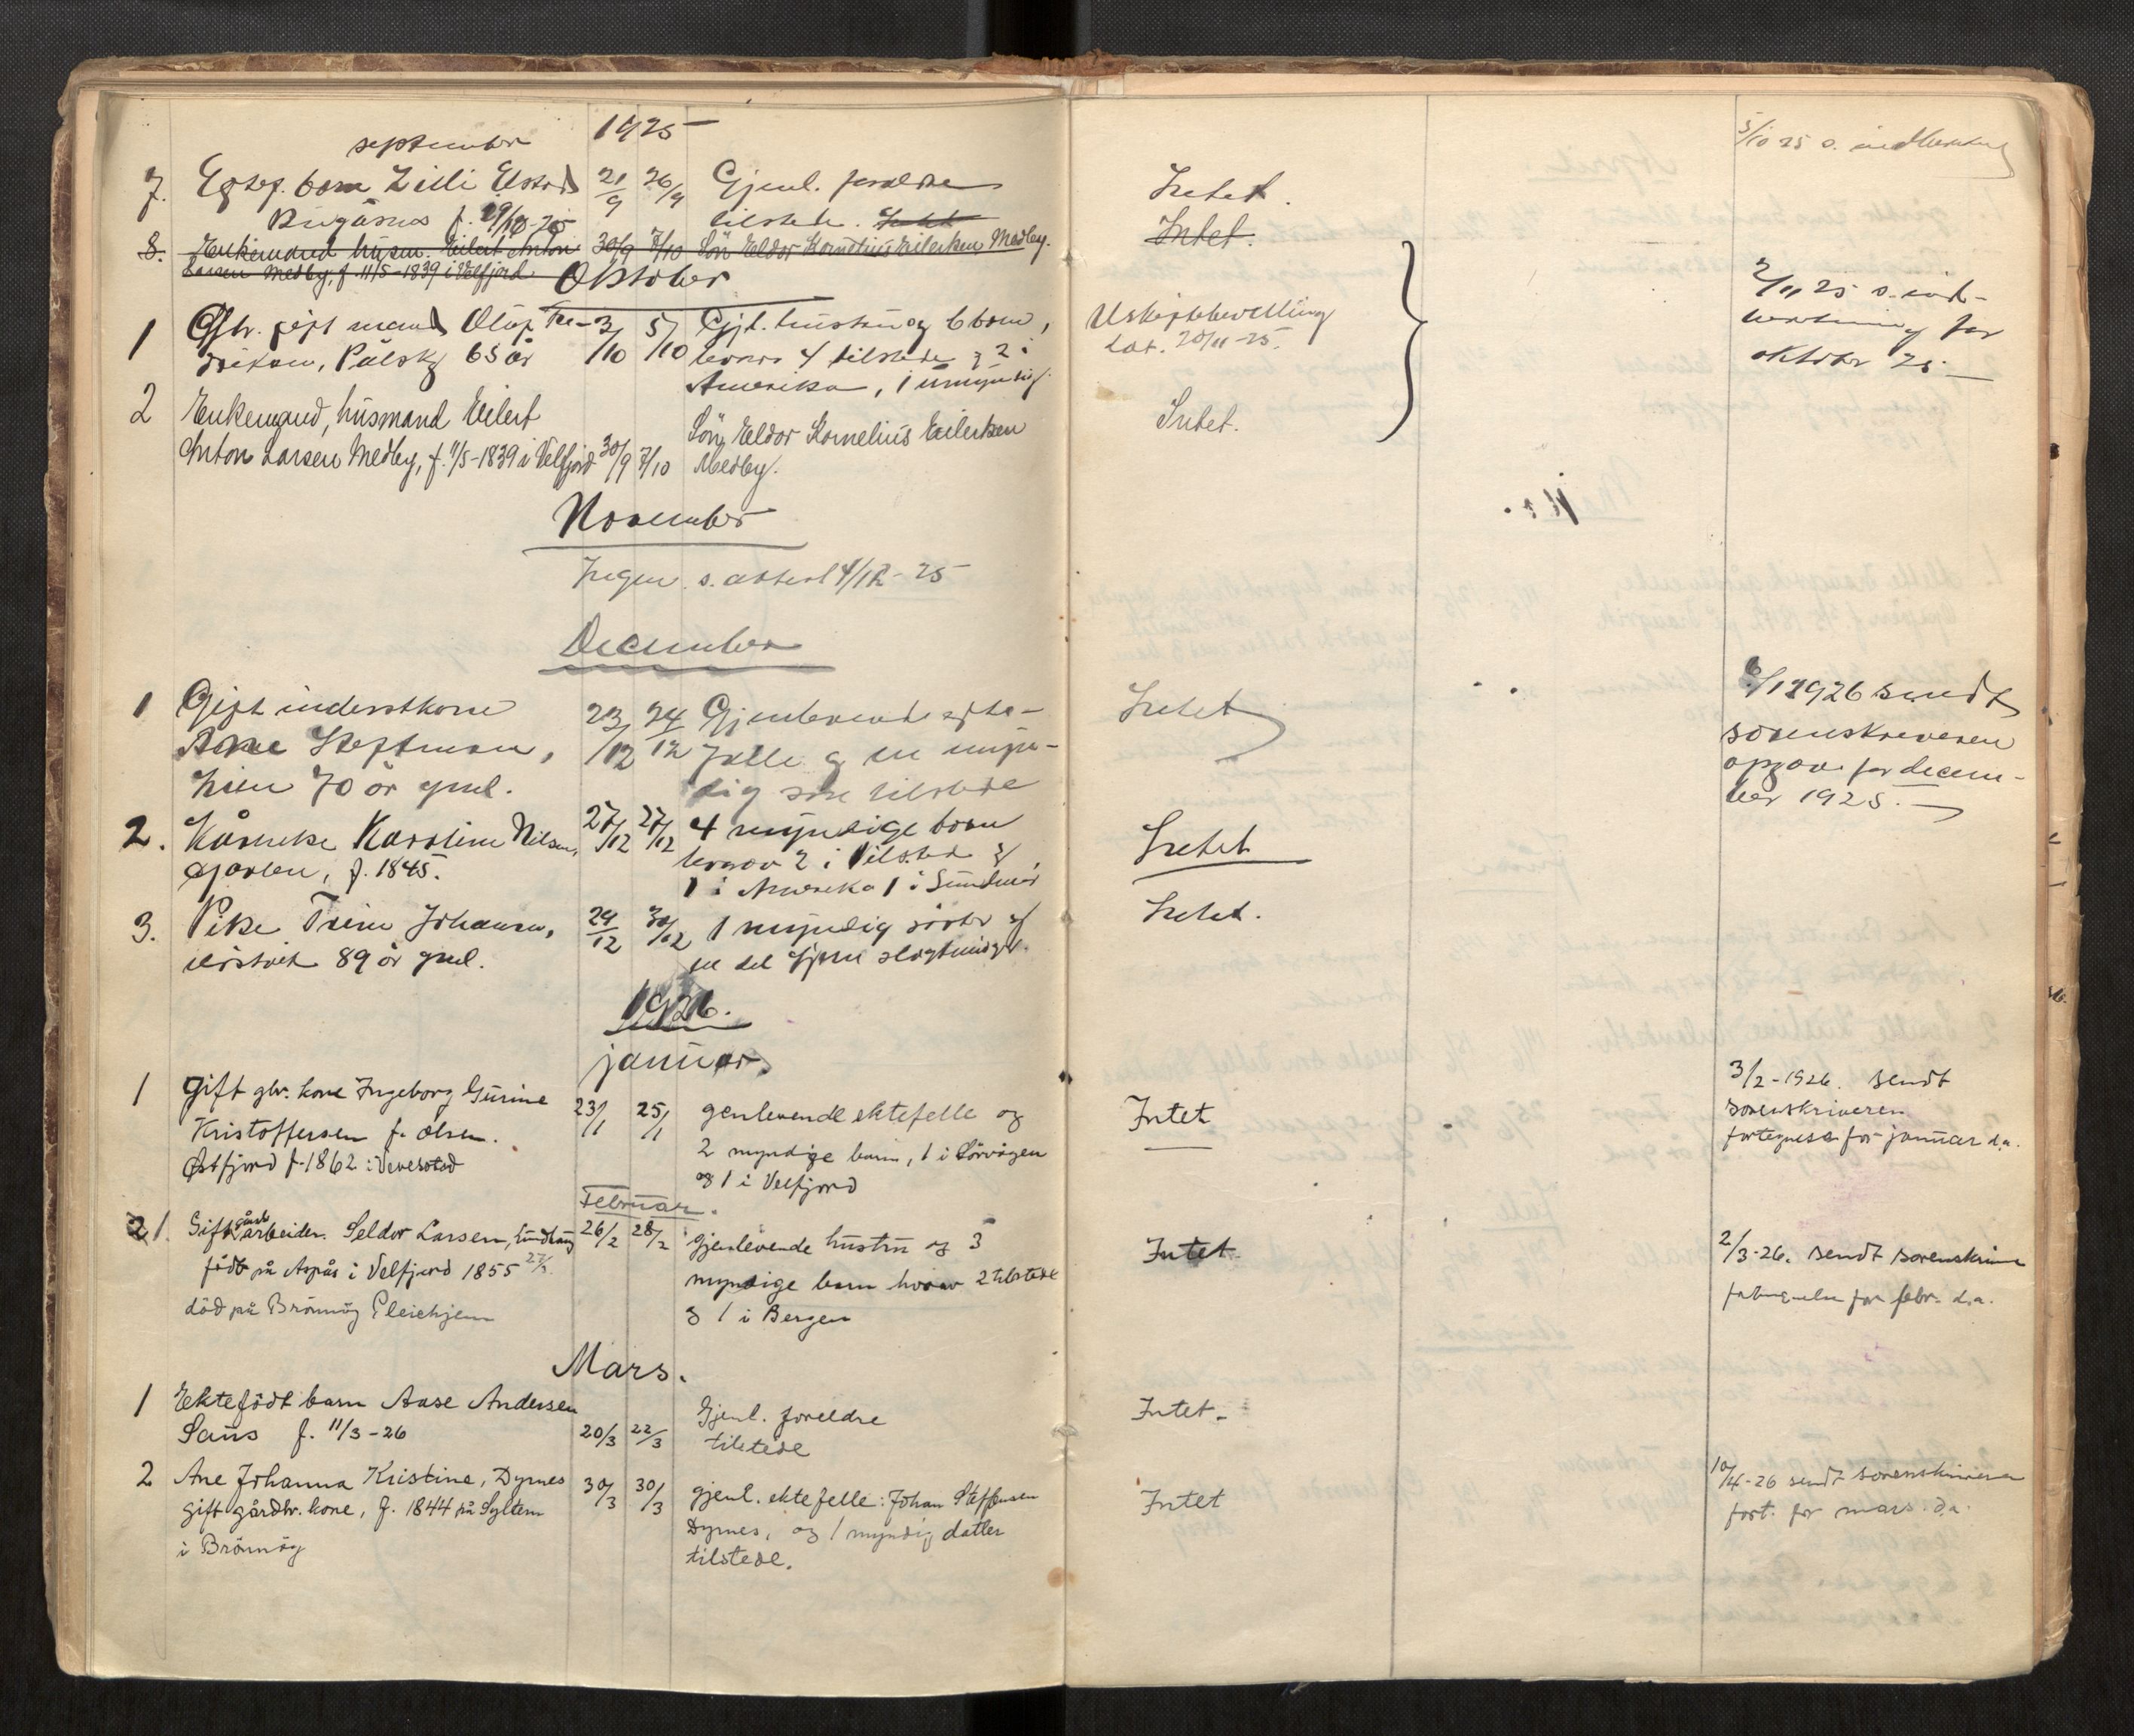 1925
september
7. Egtef. barn Lilli Elstad 21/9 26/9 Gjenl. foreldre Intet.
f. 29/10-25 tilstede. Intet
8. Enkemand husm. Eilert Anton 30/9 7/10 Sön Eldor Kornelius Eilertsen Medby. Intet.
Larsen Medby, f. 11/5-1839 i Velfjord
5/10 25 s. indberetning
Oktober
1 Gbr. gift mand Oluf Fre- 3/10 5/10 Gjl. hustru og 6 barn, Uskiftebevilling
65 år hvorav 4 tilstede og 2 i dat. 20/11-25.
Amerika, 1 umyndig.
2 Enkemand, husmand Eilert
Anton Larsen Medby, f. 11/5-1839 i Velfjord 30/9 7/10 Sön Eldor Kornelius Eilertsen Intet.
Medby.
2/11 25 s. ind-
beretning for
oktober 25.
November
Ingen s. attest 4/12-25
December
1 Gift inderstkone 23/12 24/12 Gjenlevende ekte- Intet
70 år gml. felle og en myn-
dig sön tilstede
2. Kårenke Karoline Nilsen, 27/12 27/12 4 myndige barn Intet
f. 1845. hvorav 2 i Vilsted og
1 i Amerika 1 i
3. Pike Trine Johansen, 29/12 30/12 1 myndig söster og Intet.
89 år gml. en del fjerne slegtninger.
1926 sendt
sorenskriveren
opgave for decem-
ber 1925.
1926.
januar.
1 Gift gbr. kone Ingeborg Gurine 23/1 25/1 genlevende ektefelle og Intet
Kristoffersen f. Olsen. 2 myndige barn, 1 i Sörvågen
Østfjord f. 1862 i Vevelstad og 1 i Velfjord
3/2-1926. sendt
sorenskriveren
fortegnelse for januar d.a.
Februar.
1. Gift gårdsarbeider Seldor Larsen, 26/2 28/2 gjenlevende hustru og 3 Intet
född på Aspås i Velfjord 1855 27/3 myndige barn hvorav 2 tilstede
död på Brönnöy Pleiehjem og 1 i Bergen
2/3-26. sendt sorenskriver
fortegnelse for febr. d.a.
Mars.
1 Ektefödt barn Aase Andersen Gjenl. foreldre Intet.
Saus f. 11/3-26 20/3 22/3 tilstede
2 Ane Johanna Kristine, Dyrnes 30/3 30/3 gjenl. ektefelle: Johan Steffensen Intet
gift gårdbr. kone, f. 1844 på Sylten Dyrnes, og 1 myndig datter
i Brönnöy tilstede.
10/4-26 sendt sorenskriveren
fort. for mars d.a.